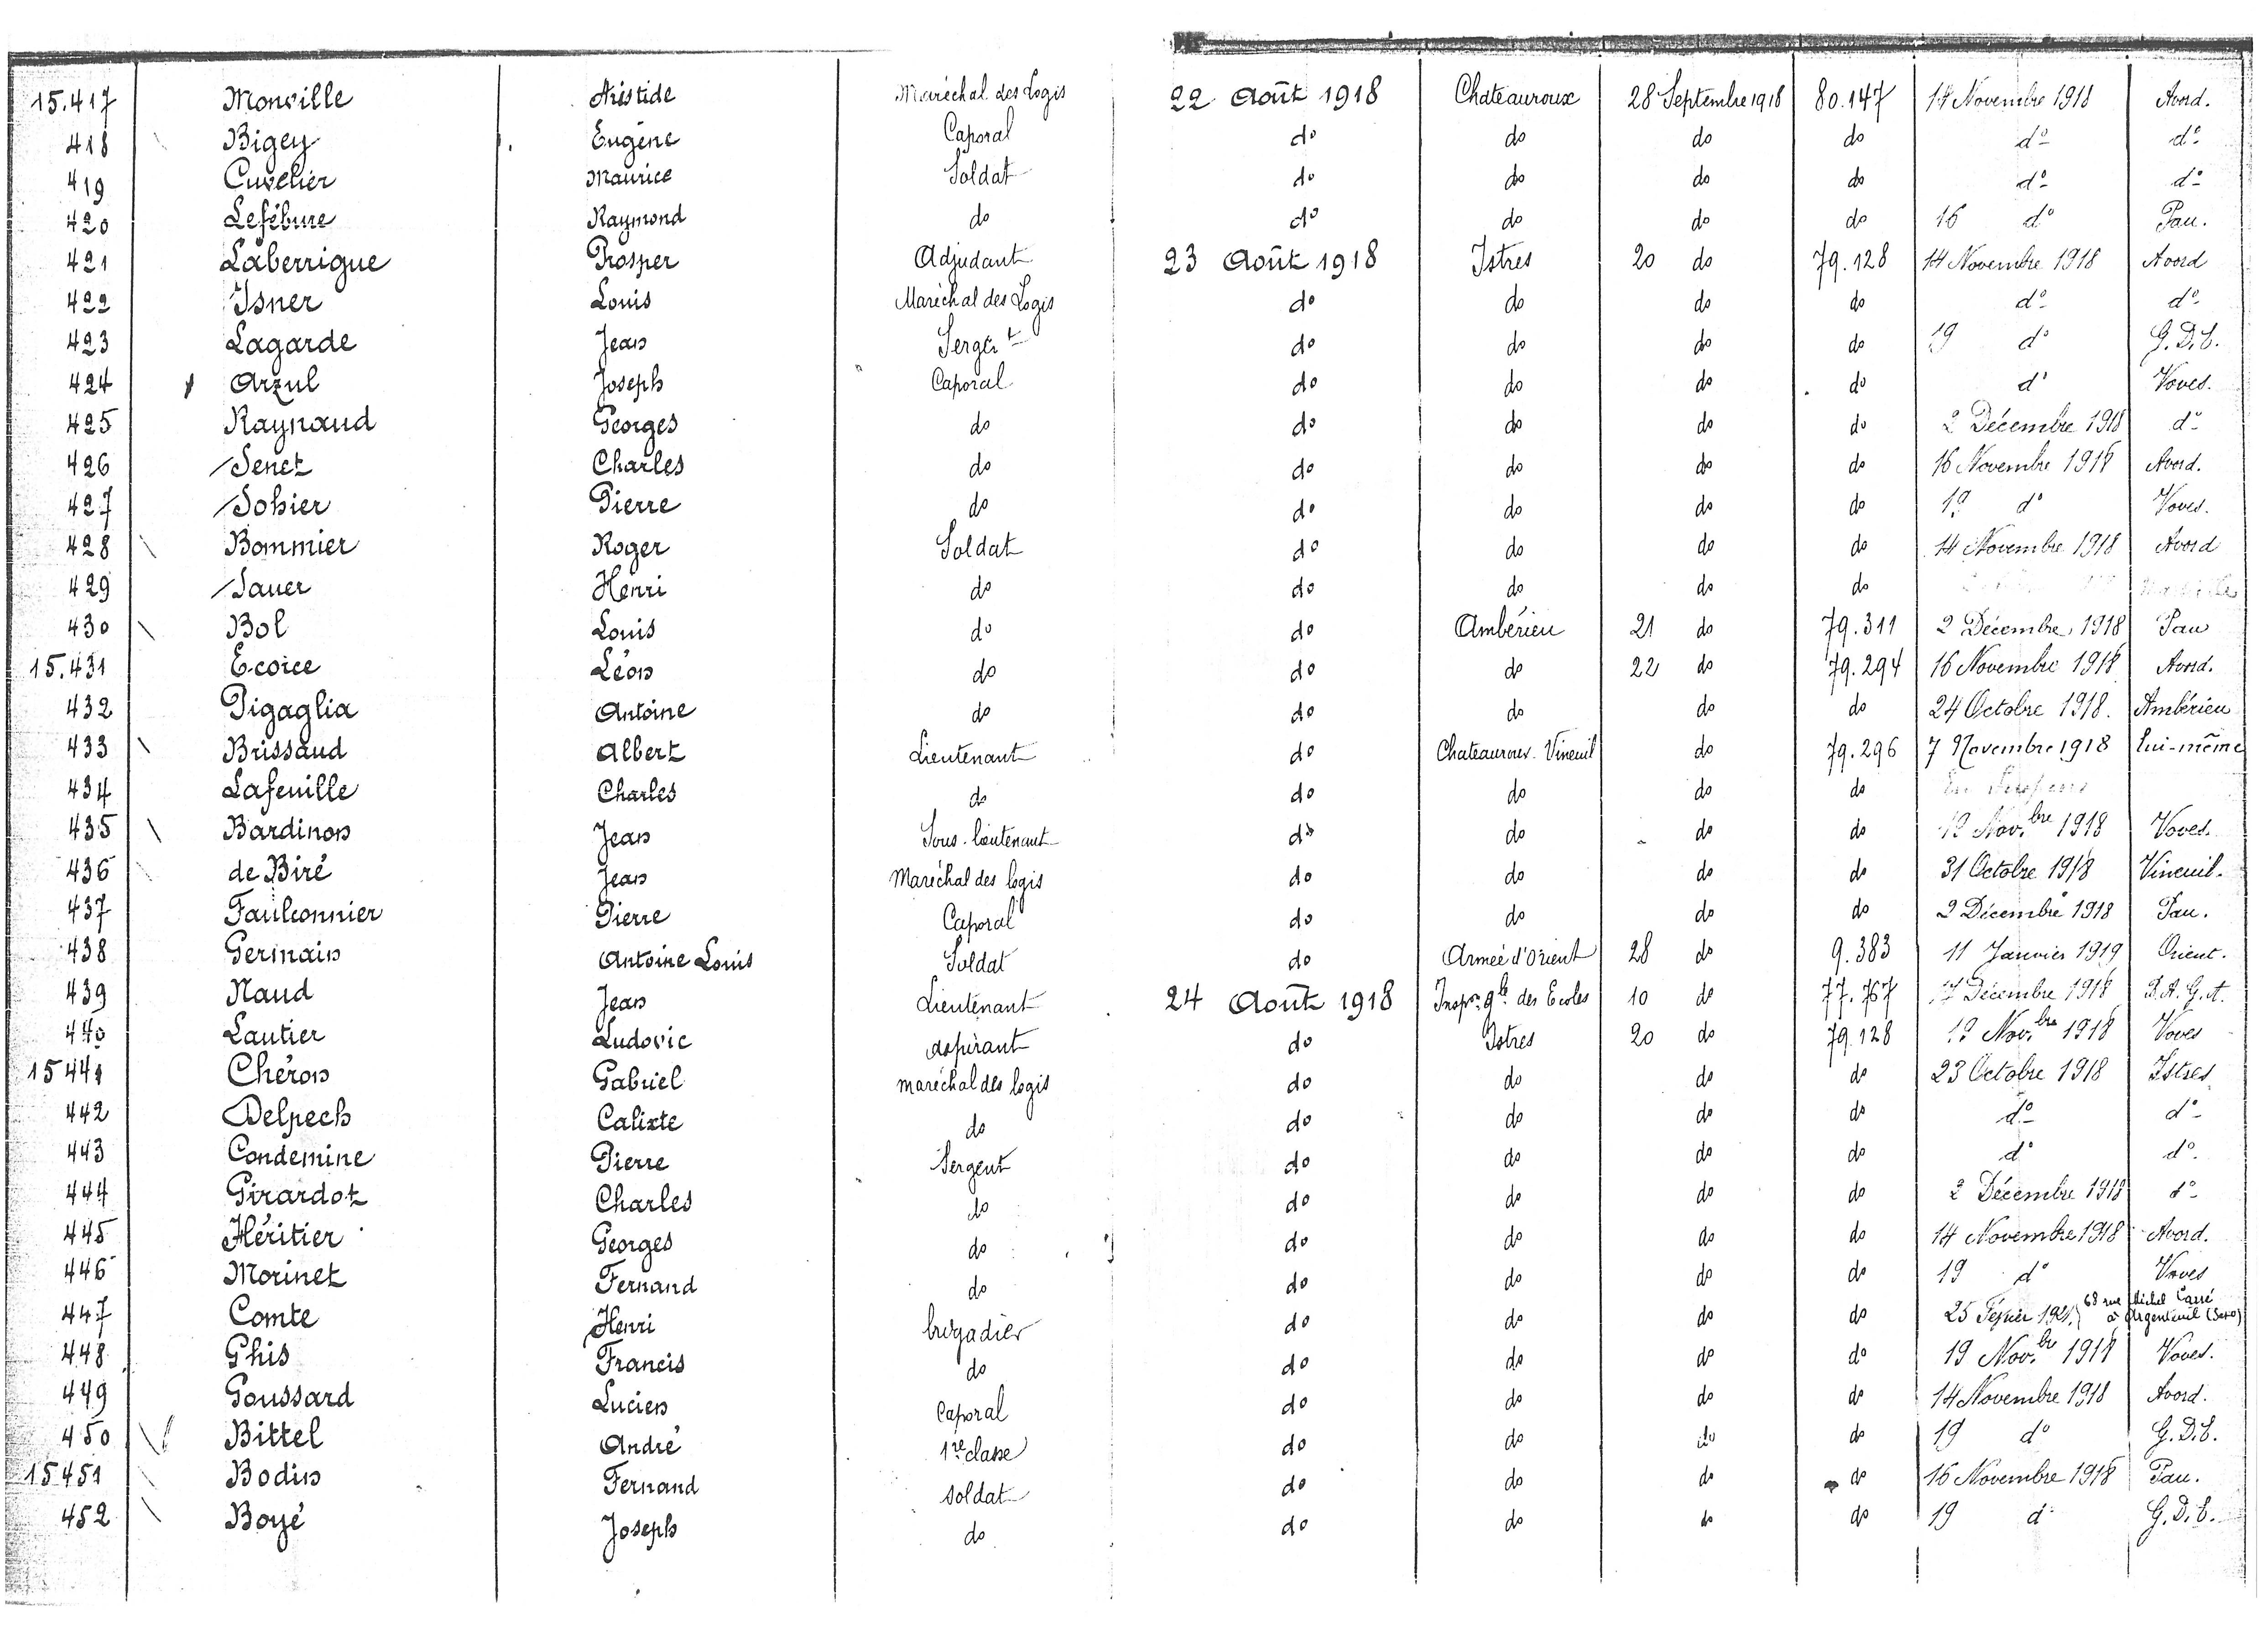 15.417 Monville Aristide Maréchal des Logis 22 Août 1918 Chateauroux 28 Septembre 1918 80.147 14 Novembre 1918 Avord.
418 Bigey Eugène Caporal do do do do do do
419 Cuvelier Maurice Soldat do do do do do do
420 Lefébure Raymond do do do do do 16 do Pau.
421 Laberrigue Prosper Adjudant 23 Août 1918 Istres 20 do 79.128 14 Novembre 1918 Avord
422 Isner Louis Maréchal des Logis do do do do do do
423 Lagarde Jean Sergent do do do do 19 do G.D.E.
424 Arzul Joseph Caporal do do do do do Voves.
425 Raynaud Georges do do do do do 2 Décembre 1918 do
426 Senet Charles do do do do do 16 Novembre 1918 Avord.
427 Sohier Pierre do do do do do 19 do Voves.
428 Bommier Roger Soldat do do do do 14 Novembre 1918 Avord
429 Sauer Henri do do do do do
430 Bol Louis do do Ambérieu 21 do 79.311 2 Décembre 1918 Pau
15.431 Ecoice Léon do do do 22 do 79.294 16 Novembre 1918 Avord.
432 Pigaglia Antoine do do do do do 24 Octobre 1918. Ambérieu
433 Brissaud Albert Lieutenant do Chateauroux-Vineuil do 79.296 7 Novembre 1918 lui-même
434 Lafeuille Charles do do do do do
435 Bardinon Jean Sous-lieutenant do do do do 19 Nov.bre 1918 Voves.
436 de Biré Jean Maréchal des logis do do do do 31 Octobre 1918 Vineuil.
437 Faulconnier Pierre Caporal do do do do 2 Décembre 1918 Pau.
438 Germain Antoine Louis Soldat do Armée d'Orient 28 do 9.383 11 Janvier 1919 Orient.
439 Naud Jean Lieutenant 24 Août 1918 Inspon gle des Ecoles 10 do 77.767 17 Décembre 1918 R.A.G.A.
440 Lautier Ludovic aspirant do Istres 20 do 79.128 19 Nov.bre 1918 Voves
15441 Chéron Gabriel maréchal des logis do do do do 23 Octobre 1918 Istres
442 Delpech Calixte do do do do do do do
443 Condemine Pierre Sergent do do do do do do.
444 Girardot Charles do do do do do 2 Décembre 1918 do
445 Héritier Georges do do do do do 14 Novembre 1918 Avord.
446 Morinet Fernand do do do do do 19 do Voves
447 Comte Henri brigadier do do do do 25 Février 68 rue Michel Carré
à Argenteuil (S&O)
448 Ghis Francis do do do do do 19 Nov.bre 1918 Voves.
449 Goussard Lucien Caporal do do do do 14 Novembre 1918 Avord.
450 Bittel André 1re classe do do do do 19 do G.D.E.
15451 Bodin Fernand soldat do do do do 16 Novembre 1918 Pau.
452 Boyé Joseph do do do do do 19 do G.D.E.